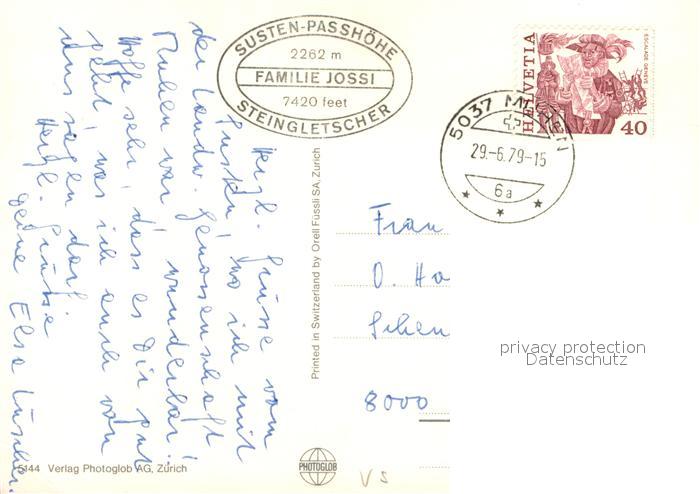 SUSTEN-PASSHÖHE
2262 m
FAMILIE JOSSI
7420 feet
STEINGLETSCHER
HELVETIA
ESCALADE GENÈVE
40
5037 MUHEN
29.-6.79-15
6a
Herzl. Grüsse vom
Susten, wo ich mit
der Landw. Genossenschaft
Muhen war, wunderbar!
Hoffe sehr, dass es Dir gut
geht, was ich auch von
uns sagen darf.
Herzl. Grüsse
Deine Elsa Lüscher
Printed in Switzerland by Orell Füssli SA, Zürich
Frau
O. Ha
8000
privacy protection
Datenschutz
5144 Verlag Photoglob AG, Zürich
PHOTOGLOB
VS